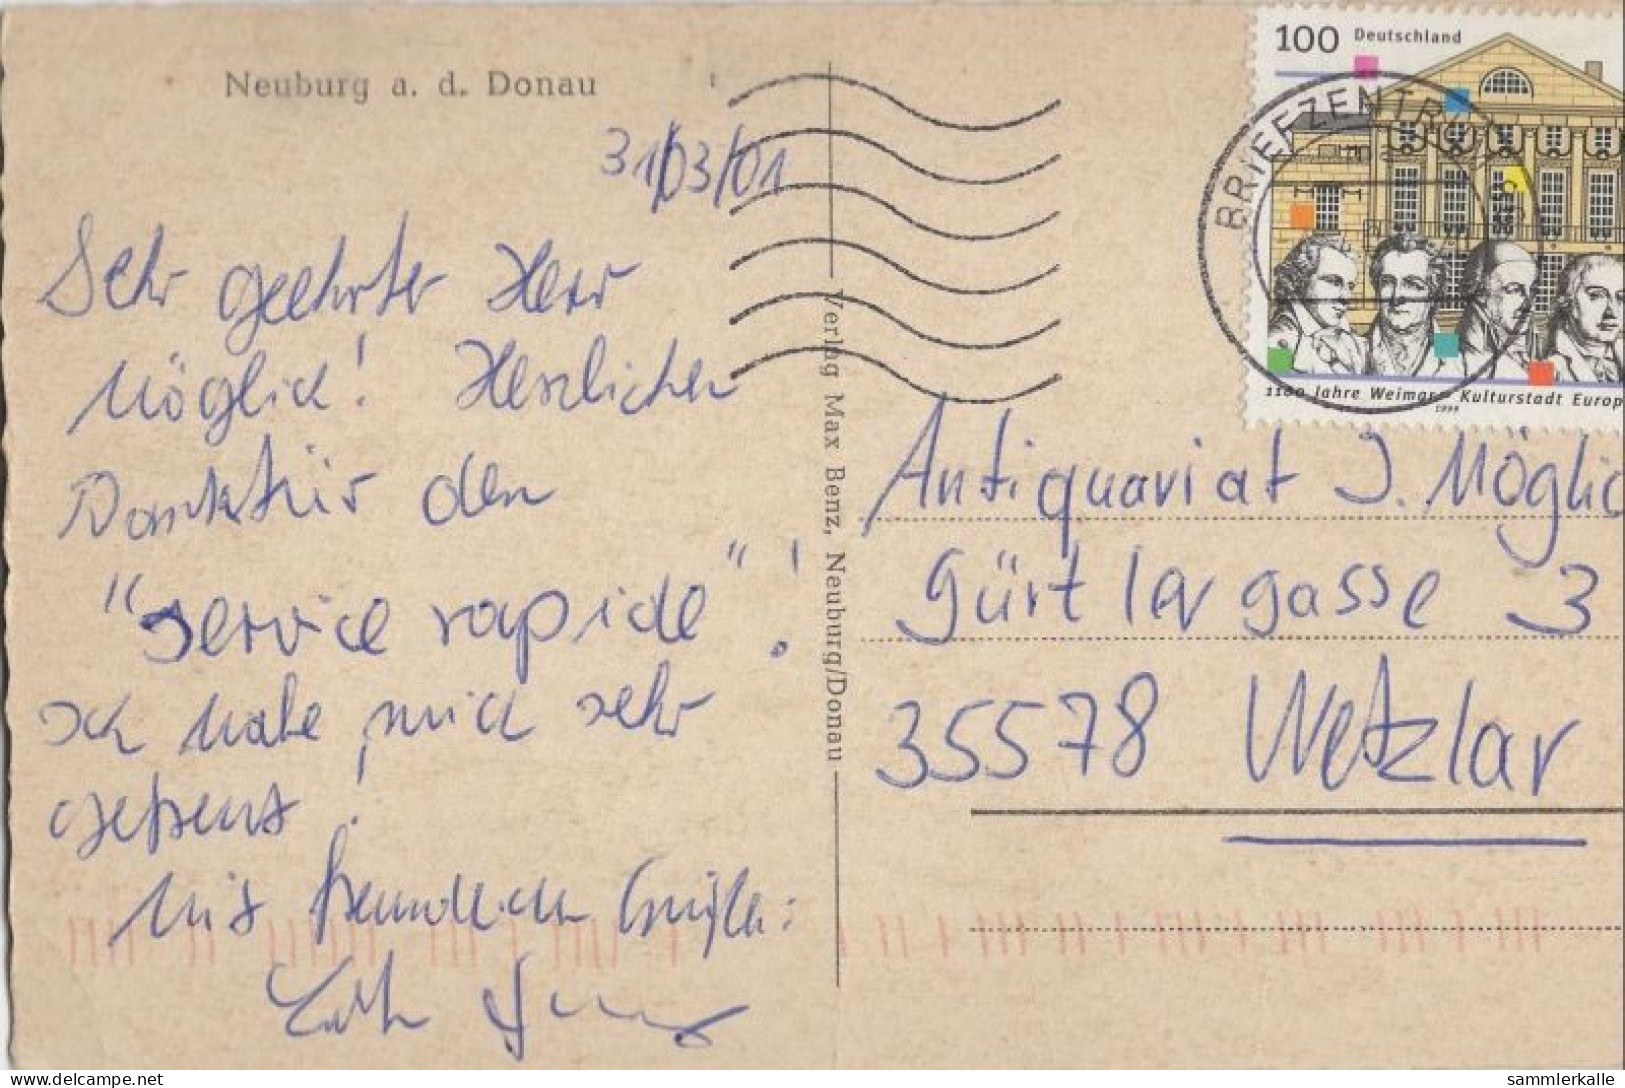 Neuburg a. d. Donau
31/03/01
Sehr geehrter Herr
Möglich! Herzlichen
Dank für den
"Service rapide"!
Ich habe mich sehr
gefreut!
Mit freundlichen Grüßen:
Verlag Max Benz, Neuburg/Donau
100 Deutschland
BRIEFZENTRUM
1100 Jahre Weimar - Kulturstadt Europ
1999
Antiquariat J. Möglic
Gürtlergasse 3
35578 Wetzlar
delcampe.net
sammlerkalle